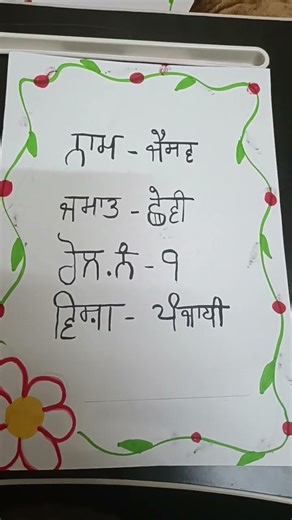 ਨਾਮ -
ਜਮਾਤ - ਛੇਵੀ
ਰੋਲ.ਨੰ - ੧
ਵਿਸ਼ਾ - ਪੰਜਾਬੀ